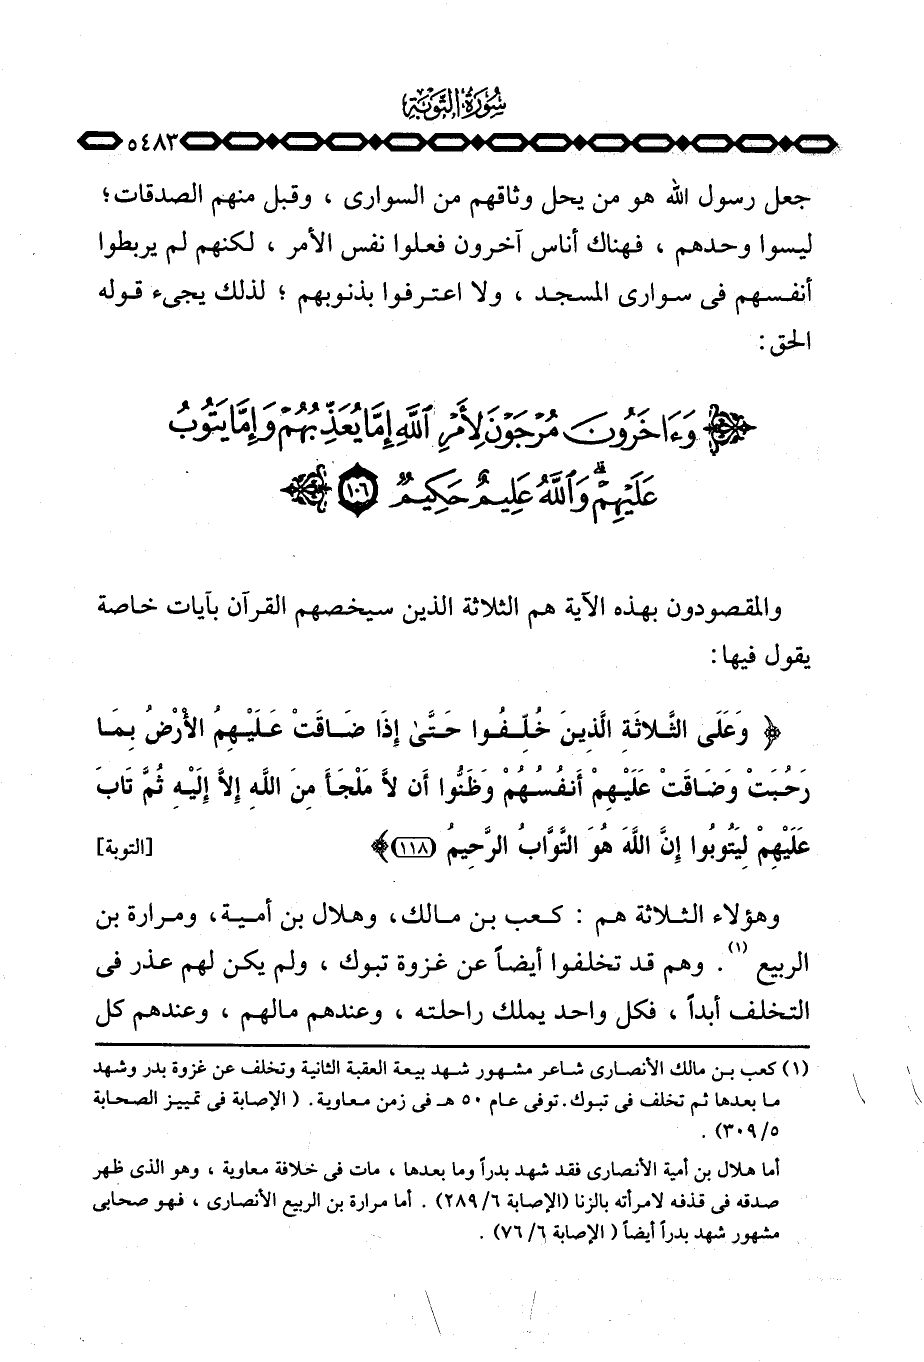 سُورَةُ التَّوبَة
٥٤٨٣
جعل رسول الله هو من يحل وثاقهم من السوارى ، وقبل منهم الصدقات؛
ليسوا وحدهم ، فهناك أناس آخرون فعلوا نفس الأمر ، لكنهم لم يربطوا
أنفسهم فى سوارى المسجد ، ولا اعترفوا بذنوبهم ؛ لذلك يجىء قوله
الحق:
وَءَاخَرُونَ مُرْجَوْنَ لِأَمْرِ ٱللَّهِ إِمَّا يُعَذِّبُهُمْ وَإِمَّا يَتُوبُ
عَلَيْهِمْ ۗ وَٱللَّهُ عَلِيمٌ حَكِيمٌ ١٠٦
والمقصودون بهذه الآية هم الثلاثة الذين سيخصهم القرآن بآيات خاصة
يقول فيها:
﴿ وَعَلَى الثَّلاثَةِ الَّذِينَ خُلِّفُوا حَتَّىٰ إِذَا ضَاقَتْ عَلَيْهِمُ الأَرْضُ بِمَا
رَحُبَتْ وَضَاقَتْ عَلَيْهِمْ أَنفُسُهُمْ وَظَنُّوا أَن لاَّ مَلْجَأَ مِنَ اللَّهِ إِلاَّ إِلَيْهِ ثُمَّ تَابَ
عَلَيْهِمْ لِيَتُوبُوا إِنَّ اللَّهَ هُوَ التَّوَّابُ الرَّحِيمُ (١١٨)﴾ [التوبة]
وهؤلاء الثلاثة هم : كعب بن مالك، وهلال بن أمية، ومرارة بن
الربيع (١) . وهم قد تخلفوا أيضاً عن غزوة تبوك ، ولم يكن لهم عذر فى
التخلف أبداً ، فكل واحد يملك راحلته ، وعندهم مالهم ، وعندهم كل
(١) كعب بن مالك الأنصارى شاعر مشهور شهد بيعة العقبة الثانية وتخلف عن غزوة بدر وشهد
ما بعدها ثم تخلف فى تبوك. توفى عام ٥٠ هـ فى زمن معاوية. ( الإصابة فى تمييز الصحابة
٥/ ٣٠٩) .
أما هلال بن أمية الأنصارى فقد شهد بدراً وما بعدها ، مات فى خلافة معاوية ، وهو الذى ظهر
صدقه فى قذفه لامرأته بالزنا (الإصابة ٦/ ٢٨٩) . أما مرارة بن الربيع الأنصارى ، فهو صحابى
مشهور شهد بدراً أيضاً ( الإصابة ٦/ ٧٦) .